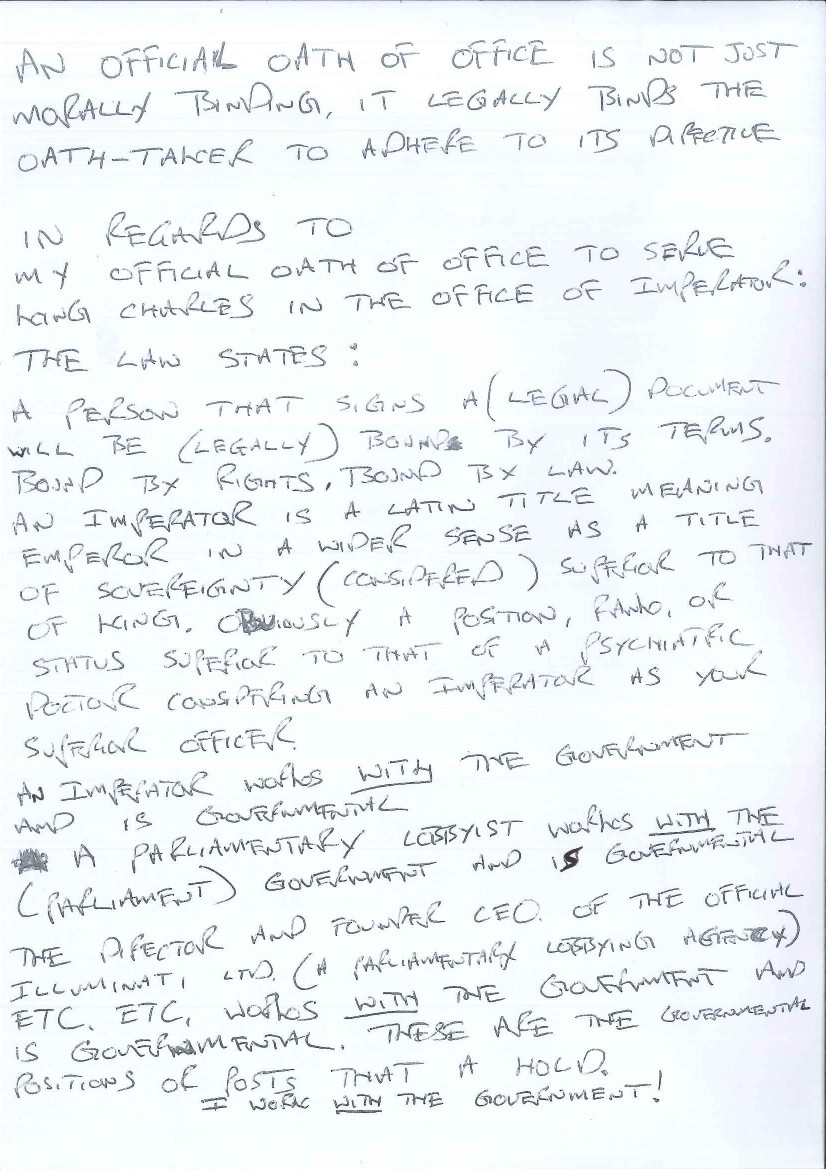 AN OFFICIAL OATH OF OFFICE IS NOT JUST
MORALLY BINDING, IT LEGALLY BINDS THE
OATH-TAKER TO ADHERE TO ITS DIRECTIVE
IN REGARDS TO
MY OFFICIAL OATH OF OFFICE TO SERVE
KING CHARLES IN THE OFFICE OF IMPERATOR:
THE LAW STATES:
A PERSON THAT SIGNS A (LEGAL) DOCUMENT
WILL BE (LEGALLY) BOUND BY ITS TERMS.
BOUND BY RIGHTS, BOUND BY LAW.
AN IMPERATOR IS A LATIN TITLE MEANING
EMPEROR IN A WIDER SENSE AS A TITLE
OF SOVEREIGNTY (CONSIDERED) SUPERIOR TO THAT
OF KING. OBVIOUSLY A POSITION, RANK, OR
STATUS SUPERIOR TO THAT OF A PSYCHIATRIC
DOCTOR CONSIDERING AN IMPERATOR AS YOUR
SUPERIOR OFFICER.
AN IMPERATOR WORKS WITH THE GOVERNMENT
AND IS GOVERNMENTAL
A PARLIAMENTARY LOBBYIST WORKS WITH THE
(PARLIAMENT) GOVERNMENT AND IS GOVERNMENTAL
THE DIRECTOR AND FOUNDER CEO. OF THE OFFICIAL
ILLUMINATI LTD. (A PARLIAMENTARY LOBBYING AGENCY)
ETC. ETC, WORKS WITH THE GOVERNMENT AND
IS GOVERNMENTAL. THESE ARE THE GOVERNMENTAL
POSITIONS OR POSTS THAT A HOLD.
I WORK WITH THE GOVERNMENT!